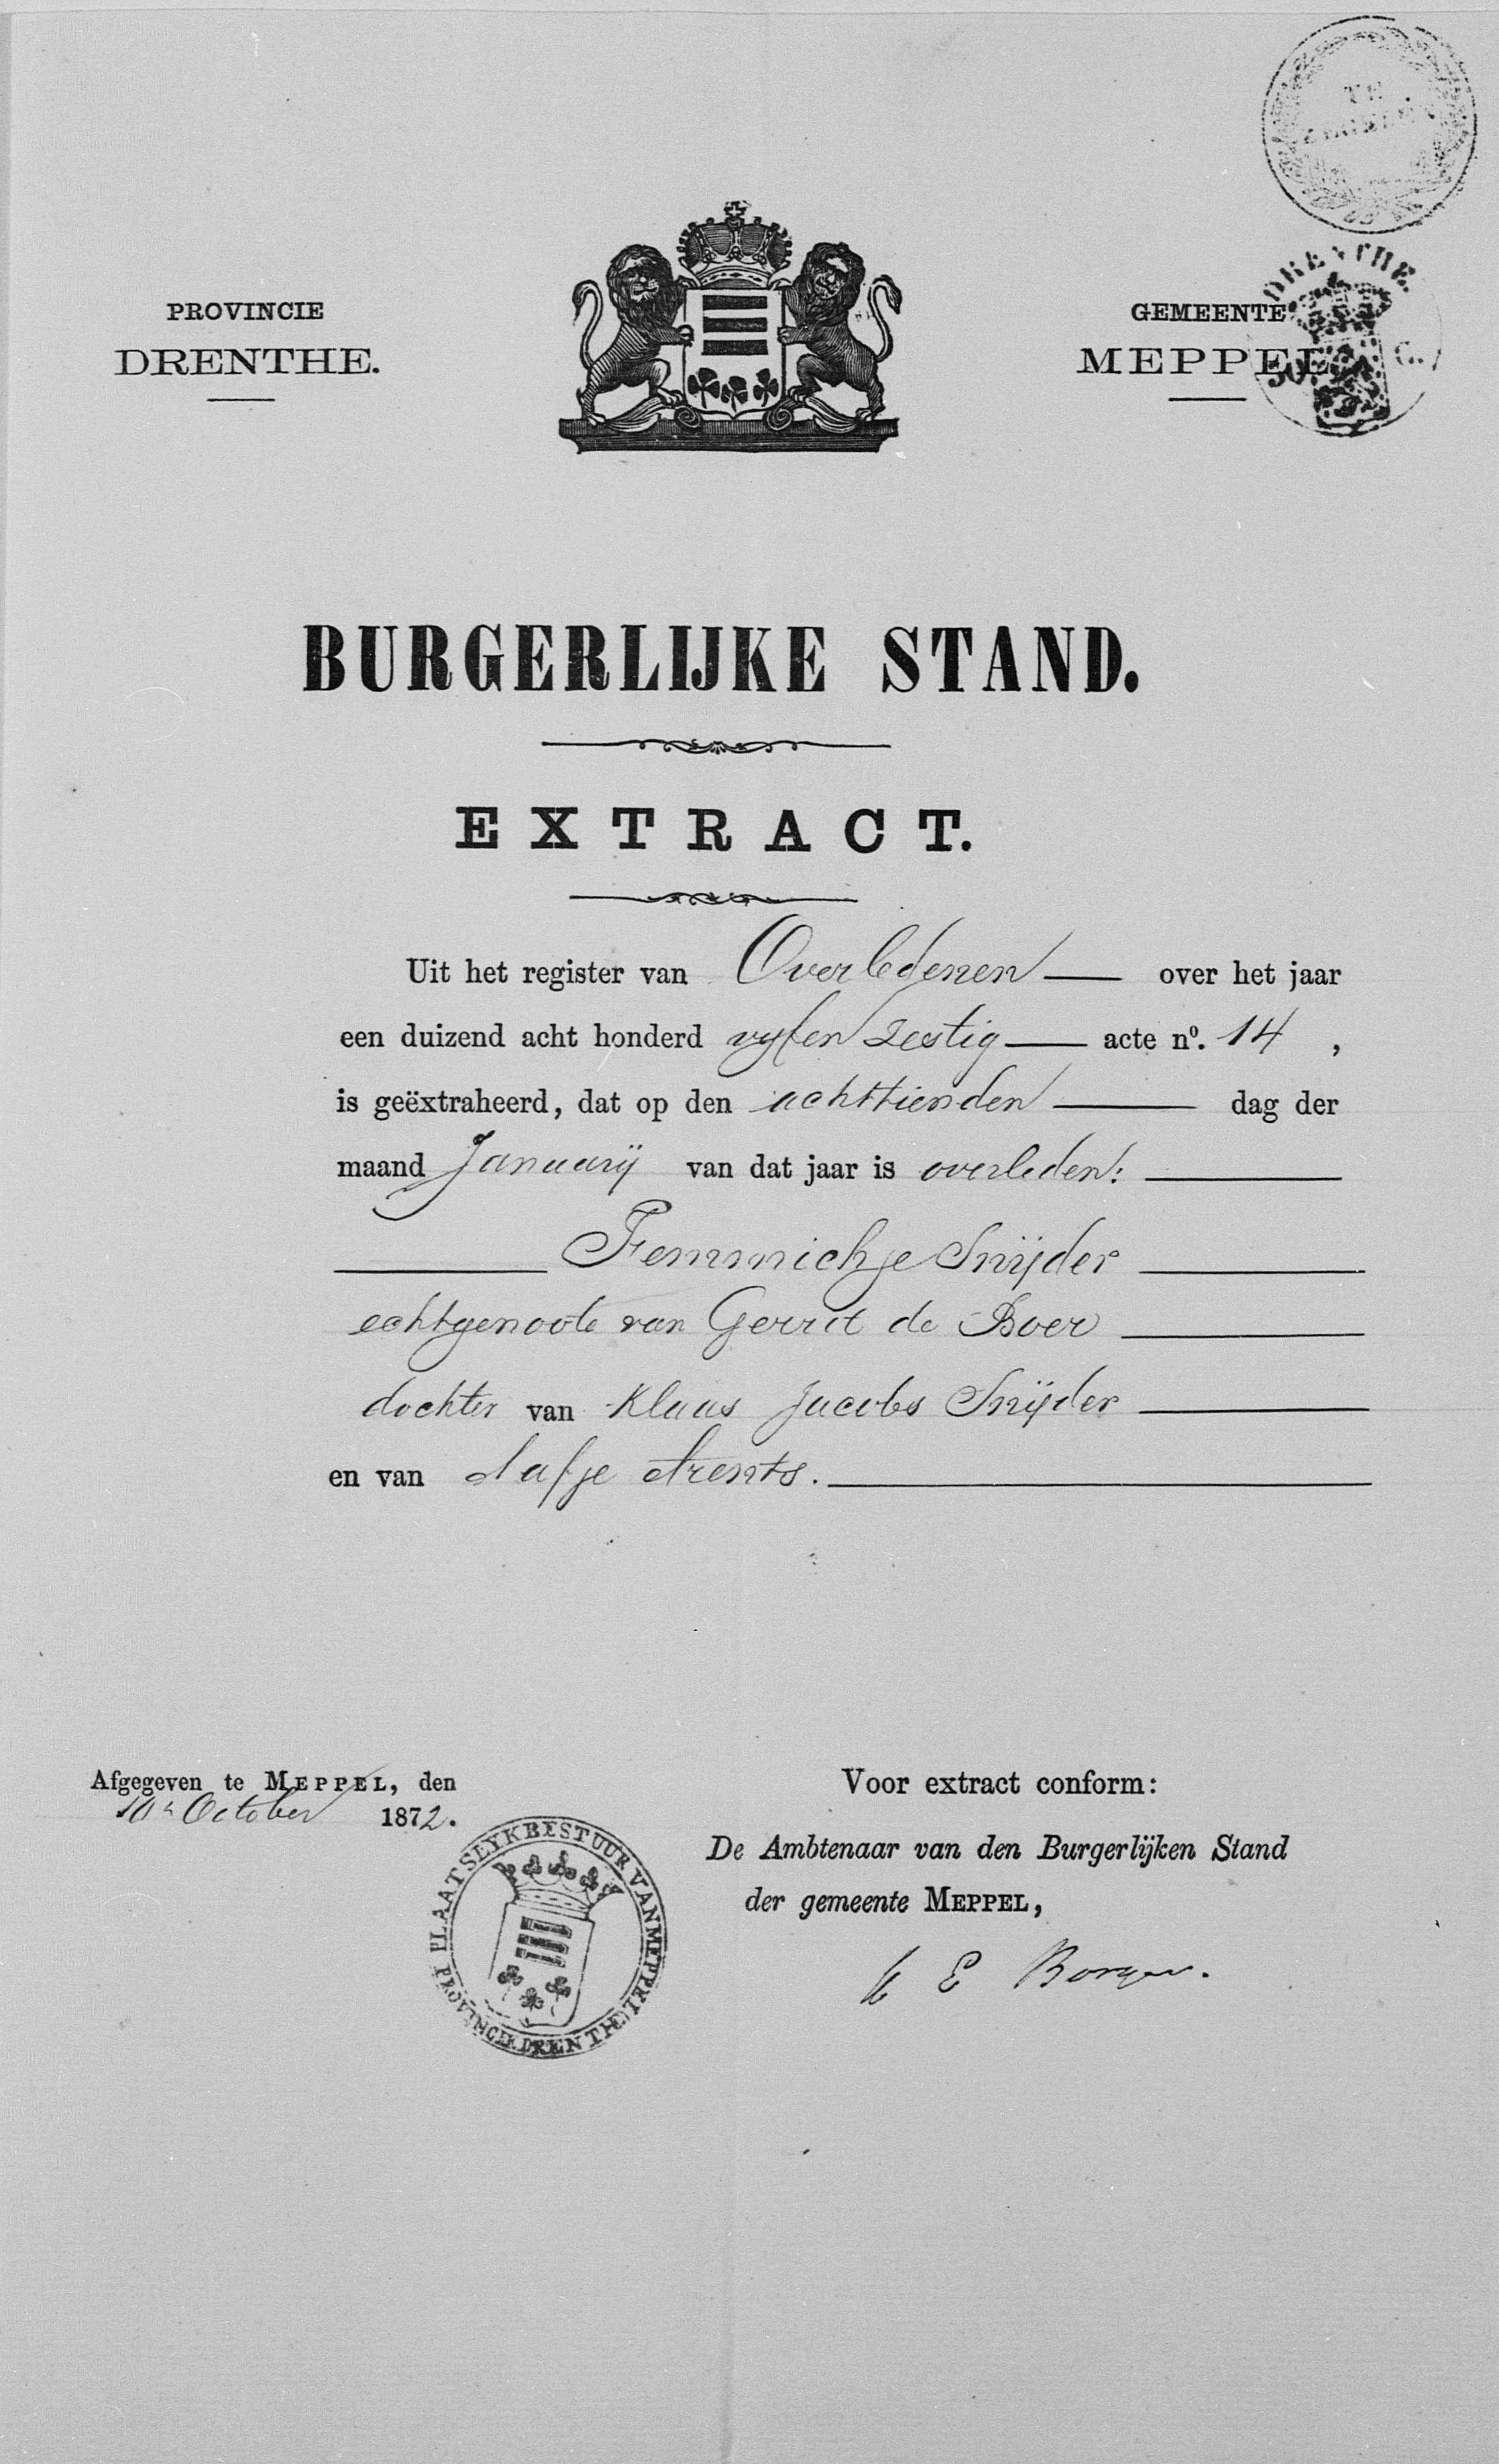 TE
DRENTHE.
PROVINCIE
DRENTHE.
GEMEENTE
MEPPEL
50 C.
BURGERLIJKE STAND.
EXTRACT.
Uit het register van Overledenen over het jaar
een duizend acht honderd vyf en zestig acte nº. 14 ,
is geëxtraheerd, dat op den achttienden dag der
maand Januarij van dat jaar is overleden:
Femmichje Snijder
echtgenoote van Gerrit de Boer
dochter van Klaas Jacobs Snijder
en van Aafje Arents.
Afgegeven te MEPPEL, den
10n October 1872.
Voor extract conform:
De Ambtenaar van den Burgerlijken Stand
der gemeente MEPPEL,
PLAATSELYK BESTUUR VAN MEPPEL
PROVINCIE DRENTHE